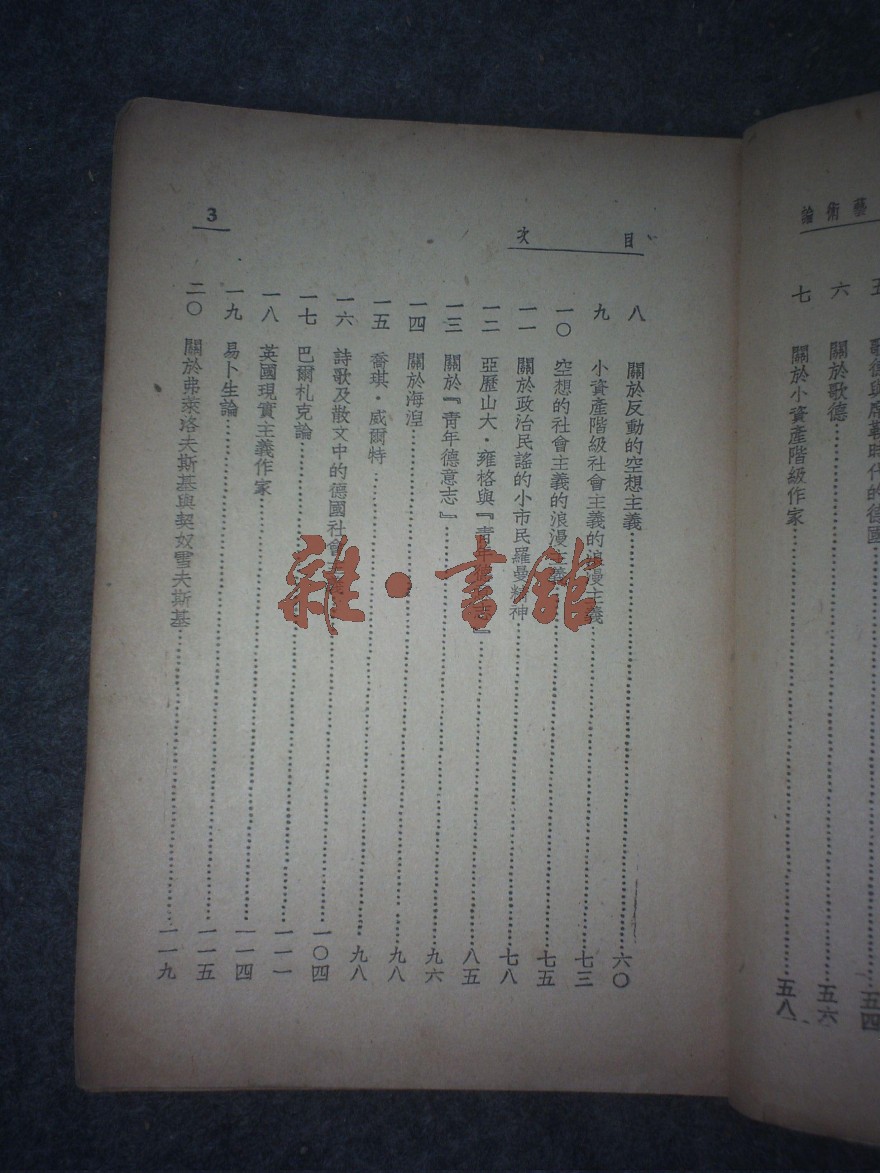 藝術論
五 歌德與席勒時代的德國……五四
六 關於歌德……五六
七 關於小資產階級作家……五八
目次
3
八 關於反動的空想主義……六〇
九 小資產階級社會主義的浪漫主義……七三
一〇 空想的社會主義的浪漫主義……七五
一一 關於政治民謠的小市民羅曼精神……七八
一二 亞歷山大・雍格與『青年德意志』……八五
一三 關於『青年德意志』……九六
一四 關於海湼……九八
一五 喬琪・威爾特……九八
一六 詩歌及散文中的德國社會主義……一〇四
一七 巴爾札克論……一一一
一八 英國現實主義作家……一一四
一九 易卜生論……一一五
二〇 關於弗萊洛夫斯基與契奴雪夫斯基……一一九
雜・書館